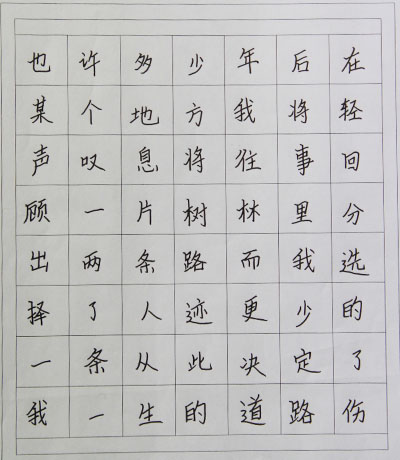 也许多少年后在
某个地方我将轻
声叹息将往事回
顾一片树林里分
出两条路而我选
择了人迹更少的
一条从此决定了
我一生的道路伤